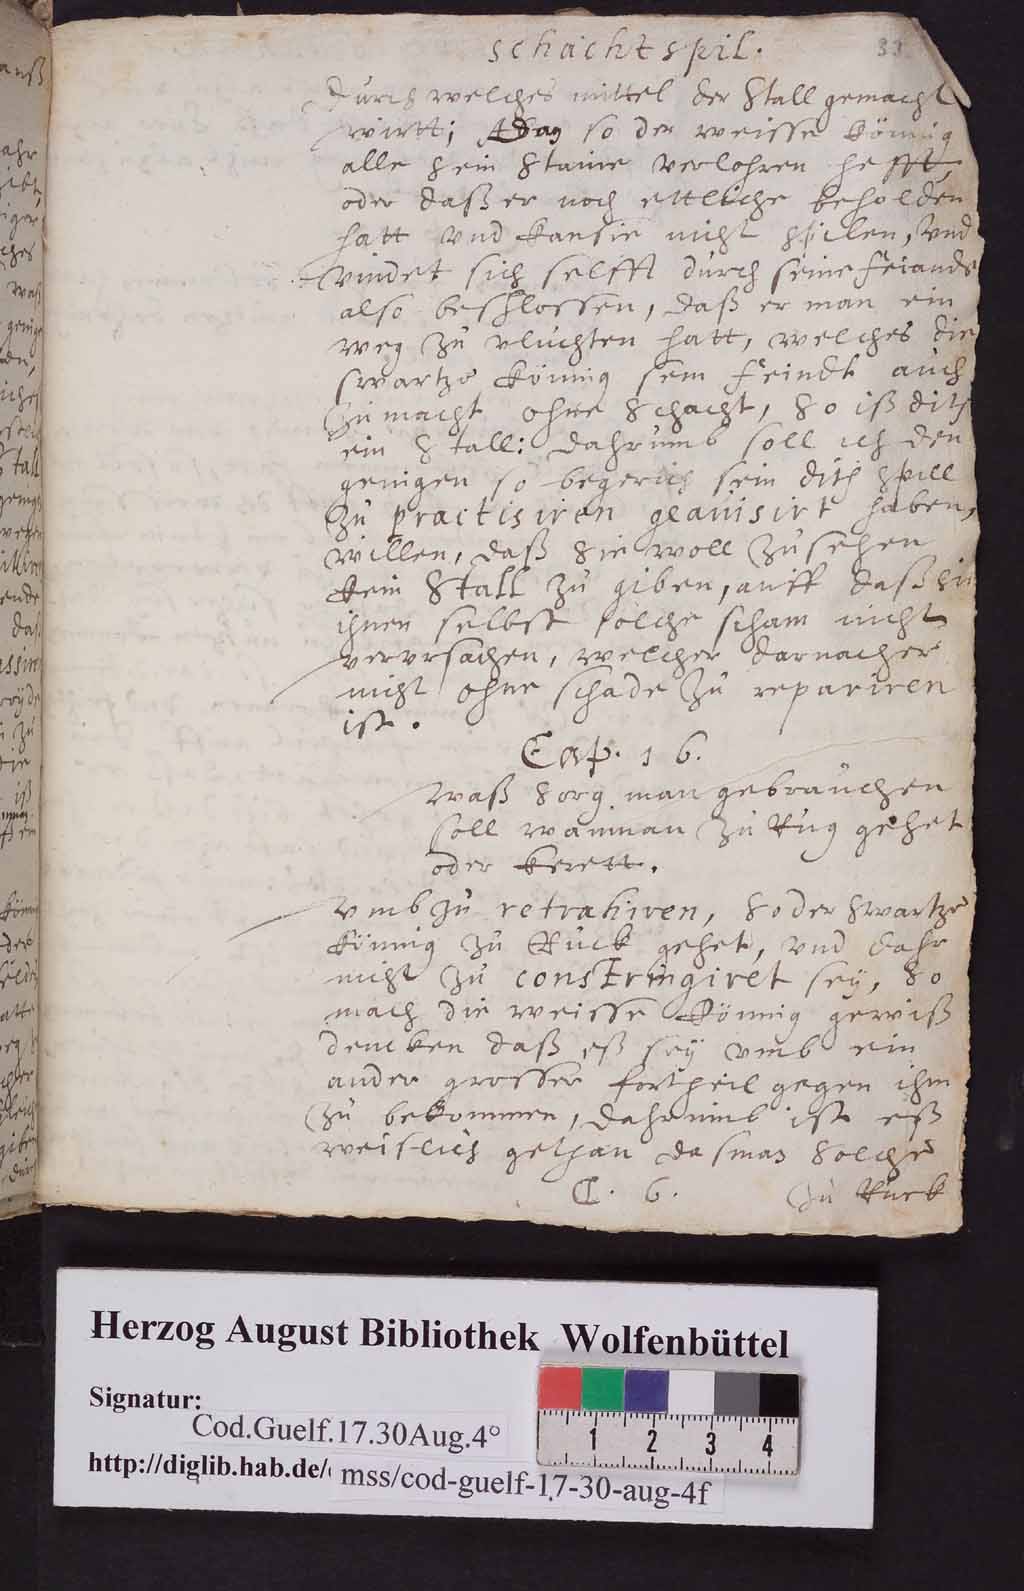 schachtspil. 33
durch welches mittel der Stall gemacht
wirtt; so der weisse Könnig
alle sein Staine verlohren hefft,
oder daß er noch ettliche beholden
hatt vnd kansie nicht spilen, vnd
vindet sich selfft durch seine feiande
also beschlossen, daß er man ein
weg zu vluchten hatt, welches die
swartze Könnig sem feindt auch
zu macht ohne Schacht, So iß dith
ein Stall: dahrumb soll ich den
genigen so begerich sein dith spill
zu practisiren geauisirt haben,
willen, daß sie woll zusehen
kein Stall zu giben, auff daß sie
ihnen selbst solche scham nicht
vervrsachen, welcher darnacher
nicht ohne schade zu repariren
ist.
Cap. 16.
Waß Sorg man gebrauchen
soll wanman zu Rug gehet
oder kerett.
Vmb zu retrahiren, So der Swartze
Könnig zu Ruck gehet, vnd dahr
nicht zu constringiret sey, So
mach die weisse Könnig gewiß
dencken daß eß sey vmb ein
ander grosser fortheil gegen ihm
zu bekommen, dahrumb ist eß
weislich gethan dasman Solche
C. 6. zu Ruck
Herzog August Bibliothek Wolfenbüttel
Signatur:
Cod.Guelf.17.30Aug.4°
http://diglib.hab.de/ mss/cod-guelf-17-30-aug-4f
1 2 3 4